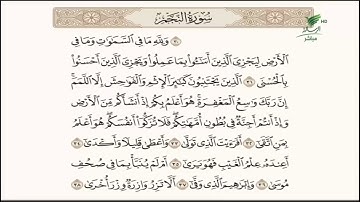 سُورَةُ النَّجْمِ
HD
مباشر
٣٠ وَلِلَّهِ مَا فِي السَّمَٰوَٰتِ وَمَا فِي
الْأَرْضِ لِيَجْزِيَ الَّذِينَ أَسَٰٓـُٔوا بِمَا عَمِلُوا وَيَجْزِيَ الَّذِينَ أَحْسَنُوا
بِالْحُسْنَى ٣١ الَّذِينَ يَجْتَنِبُونَ كَبَٰٓئِرَ الْإِثْمِ وَالْفَوَٰحِشَ إِلَّا اللَّمَمَ
إِنَّ رَبَّكَ وَٰسِعُ الْمَغْفِرَةِ هُوَ أَعْلَمُ بِكُمْ إِذْ أَنشَأَكُم مِّنَ الْأَرْضِ
وَإِذْ أَنتُمْ أَجِنَّةٌ فِي بُطُونِ أُمَّهَٰتِكُمْ فَلَا تُزَكُّوا أَنفُسَكُمْ هُوَ أَعْلَمُ
بِمَنِ اتَّقَىٰٓ ٣٢ أَفَرَءَيْتَ الَّذِي تَوَلَّىٰ ٣٣ وَأَعْطَىٰ قَلِيلًا وَأَكْدَىٰٓ ٣٤
أَعِندَهُۥ عِلْمُ الْغَيْبِ فَهُوَ يَرَىٰٓ ٣٥ أَمْ لَمْ يُنَبَّأْ بِمَا فِي صُحُفِ
مُوسَىٰ ٣٦ وَإِبْرَٰهِيمَ الَّذِي وَفَّىٰٓ ٣٧ أَلَّا تَزِرُ وَازِرَةٌ وِزْرَ أُخْرَىٰ ٣٨